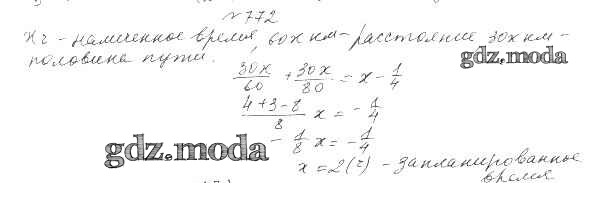 №772
x г - намеченное время, 60x км - расстояние 30x км -
половина пути.
gdz.moda
30x/60 + 30x/80 = x - 1/4
(4+3-8)/8 x = - 1/4
gdz.moda
- 1/8 x = - 1/4
x = 2 (г) - запланированное
время